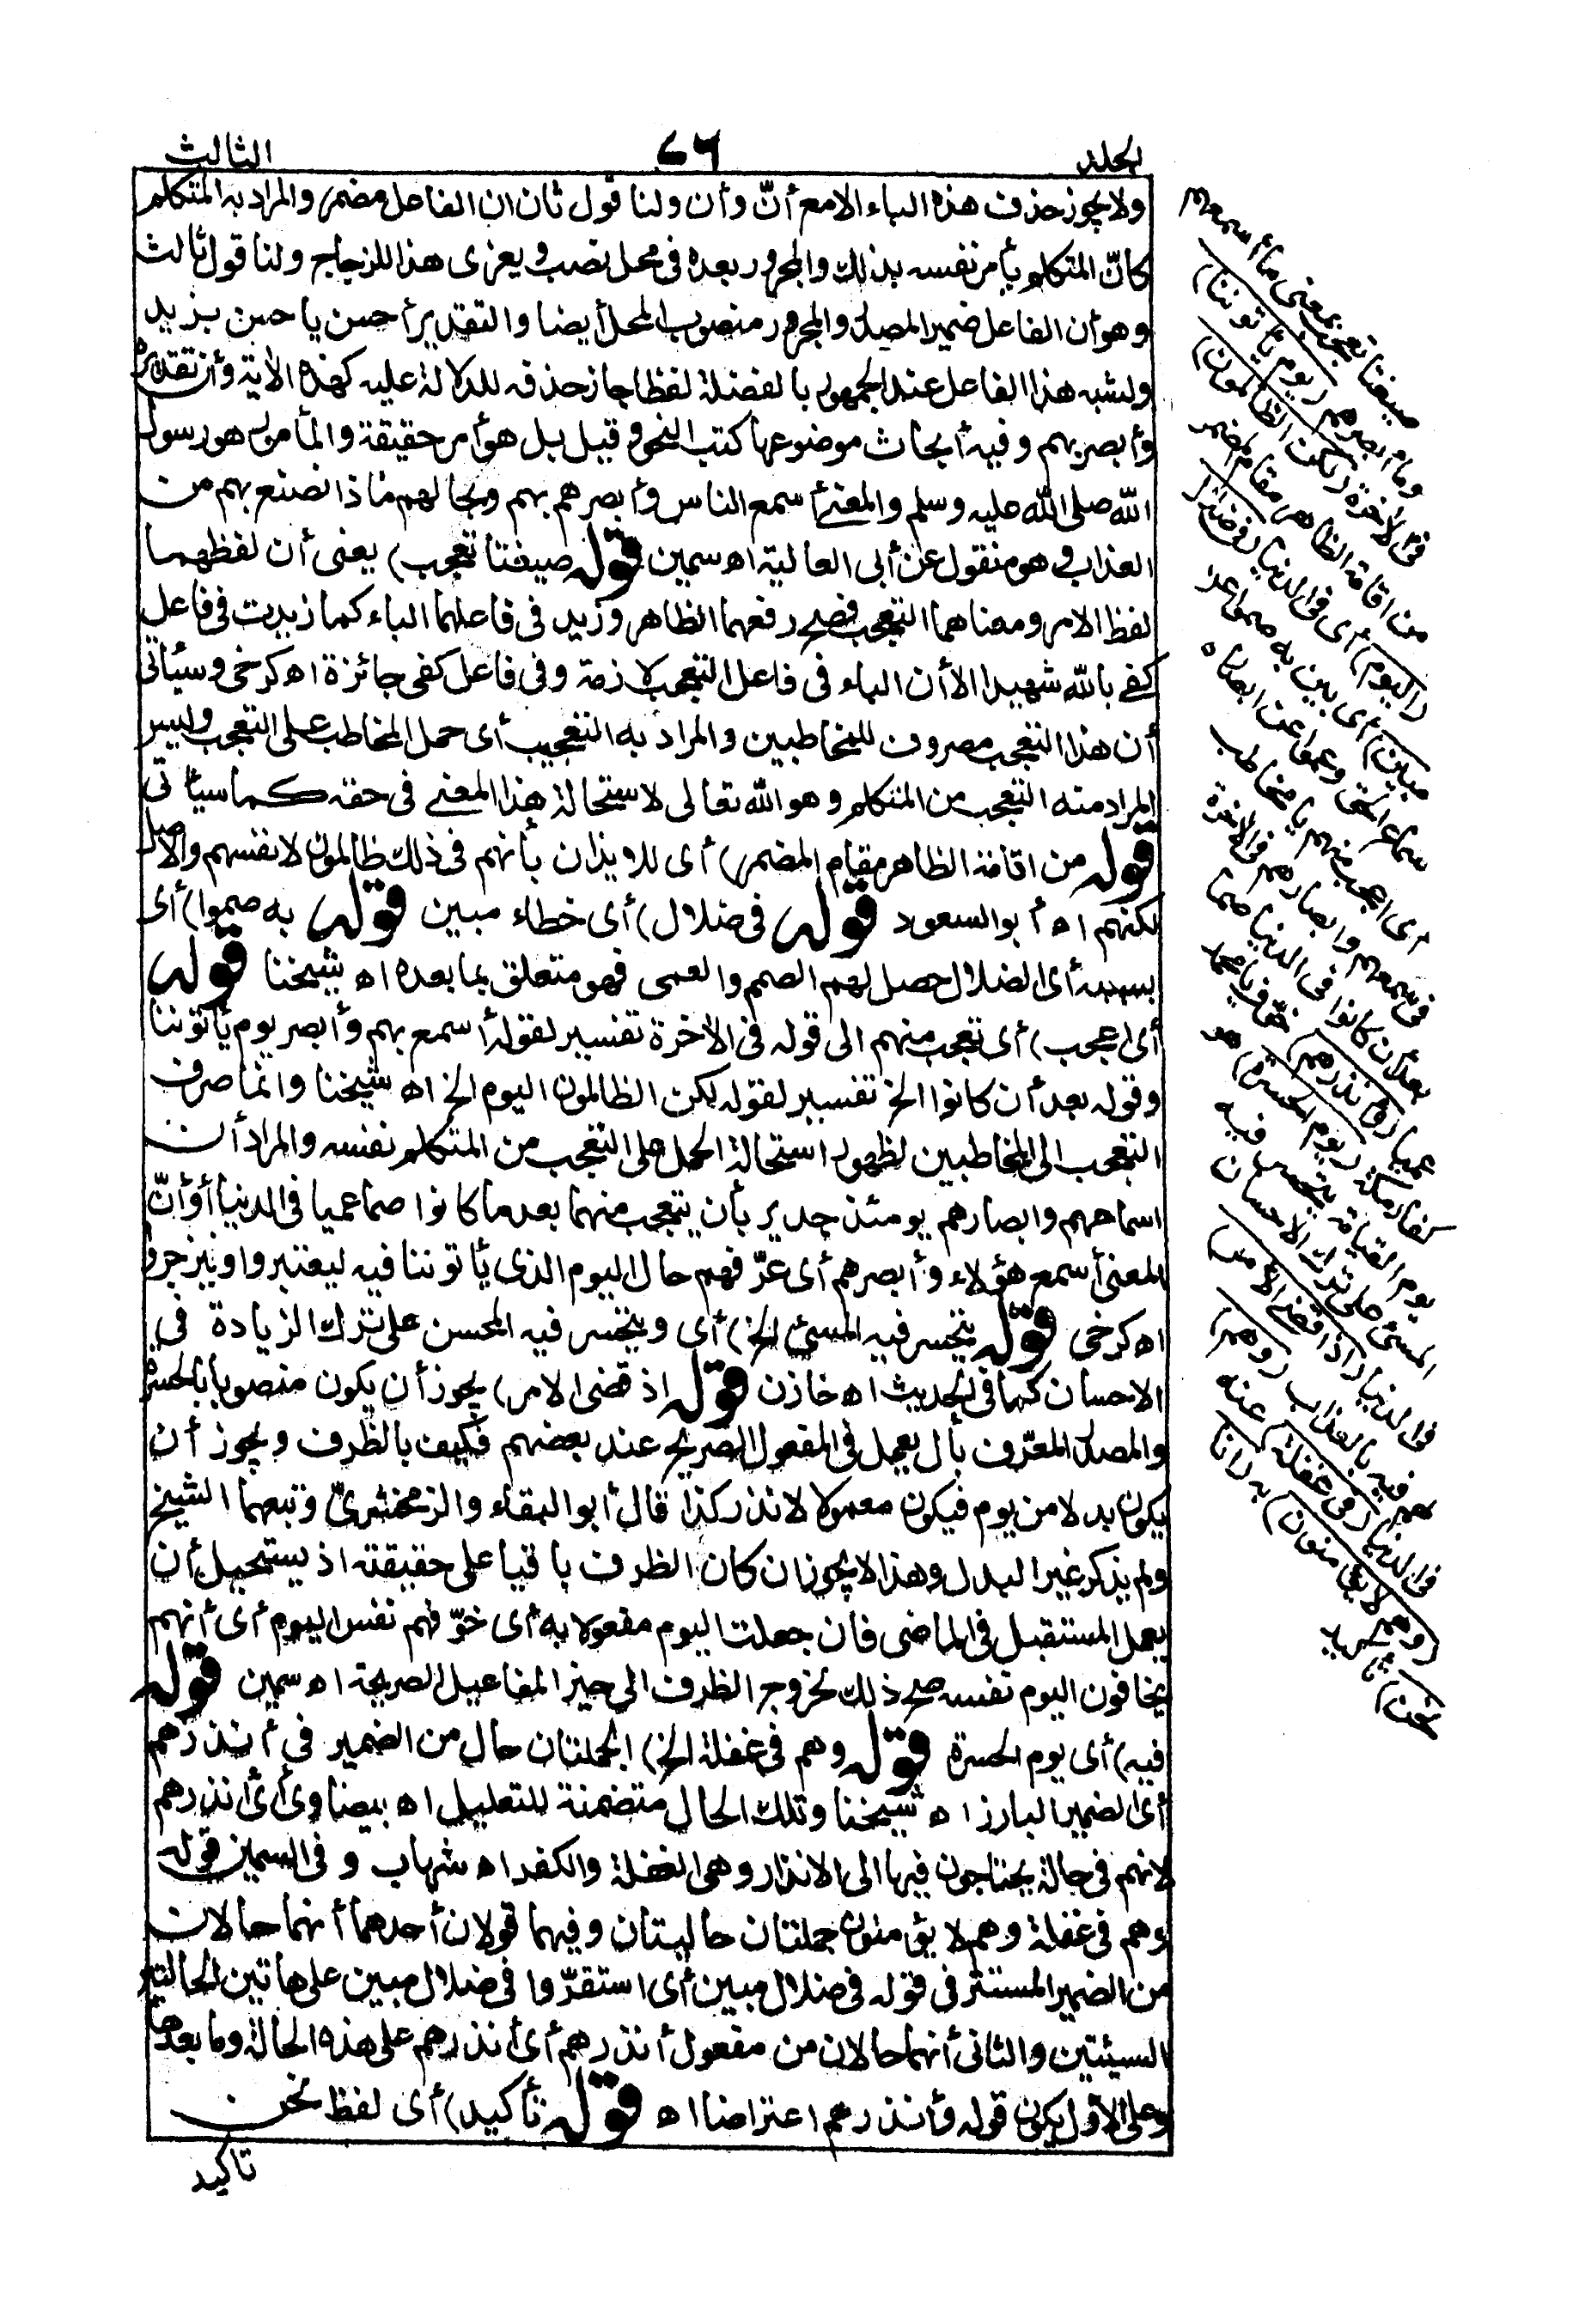 الجلد ٧٦ الثالث
ولا يجوز حذف هذه الباء الامع أنّ وأن ولنا قول ثان ان الفاعل مضمر والمراد به المتكلم
كانّ المتكلم يأمر نفسه بذلك والمجرور بعده فى محل نصب ويعزى هذا للزجاج ولنا قول ثالث
وهو أن الفاعل ضمير المصدر والمجرور منصوب المحل أيضا والتقدير أحسن يا حسن بزيد
ولشبه هذا الفاعل عند الجمهور بالفضلة لفظا جاز حذفه للدلالة عليه كهذه الاية وأن تقديره
وأبصر بهم وفيه أبحاث موضوعها كتب النحو وقيل بل هو أمر حقيقة والمأمور هو رسول
الله صلى الله عليه وسلم والمعنى أسمع الناس وأبصرهم بهم وبحالهم ماذا نصنع بهم من
العذاب وهو منقول عن أبى العالية اه سمين قوله صيغتا تعجب) يعنى أن لفظهما
لفظ الامر ومعناهما التعجب فصح رفعهما الظاهر وزيد فى فاعلهما الباء كما زيدت فى فاعل
كفى بالله شهيدا الا أن الباء فى فاعل التعجب لازمة وفى فاعل كفى جائزة اه كرخى وسيأتى
أن هذا التعجب مصروف للمخاطبين والمراد به التعجيب أى حمل المخاطب على التعجب وليس
المراد منه التعجب من المتكلم وهو الله تعالى لاستحالة هذا المعنى فى حقه كما سيأتى
قوله من اقامة الظاهر مقام المضمر) أى للايذان بأنهم فى ذلك ظالمون لانفسهم والاصل
لكنهم اه أبو السعود قوله فى ضلال) أى خطاء مبين قوله به صموا) أى
بسببه أى الضلال حصل لهم الصمم والعمى فهو متعلق بما بعده اه شيخنا قوله
أى اعجب) أى تعجب منهم الى قوله فى الاخرة تفسير لقوله أسمع بهم وأبصر يوم يأتوننا
وقوله بعد أن كانوا الخ تفسير لقوله لكن الظالمون اليوم الخ اه شيخنا وانما صرف
التعجب الى المخاطبين لظهور استحالة الحمل على التعجب من المتكلم نفسه والمراد أن
اسماعهم وابصارهم يومئذ جدير بأن يتعجب منهما بعد ما كانوا صما عميا فى الدنيا أو أنّ
المعنى أسمع هؤلاء وأبصرهم أى عرّفهم حال اليوم الذى يأتوننا فيه ليعتبروا وينزجروا
اه كرخى قوله يتحسر فيه المسئ الخ) أى ويتحسر فيه المحسن على ترك الزيادة فى
الاحسان كما فى الحديث اه خازن قوله اذ قضى الامر) يجوز أن يكون منصوبا بالحسرة
والمصدر المعرّف بأل يعمل فى المفعول الصريح عند بعضهم فكيف بالظرف ويجوز أن
يكون بدلا من يوم فيكون معمولا لانذر كذا قال أبو البقاء والزمخشرىّ وتبعهما الشيخ
ولم يذكر غير البدل وهذا لا يجوز ان كان الظرف باقيا على حقيقته اذ يستحيل أن
يعمل المستقبل فى الماضى فان جعلت اليوم مفعولا به أى خوّفهم نفس اليوم أى أنهم
يخافون اليوم نفسه صح ذلك لخروج الظرف الى حيز المفاعيل الصريحة اه سمين قوله
فيه) أى يوم الحسرة قوله وهم فى غفلة الخ) الجملتان حال من الضمير فى أنذرهم
أى الضمير البارز اه شيخنا وتلك الحال متضمنة للتعليل اه بيضاوى أى أنذرهم
لانهم فى حالة يحتاجون فيها الى الانذار وهى الغفلة والكفر اه شهاب وفى السمين قوله
وهم فى غفلة وهم لا يؤمنون جملتان حاليتان وفيهما قولان أحدهما أنهما حالان
من الضمير المستتر فى قوله فى ضلال مبين أى استقرّوا فى ضلال مبين على هاتين الحالتين
السيئتين والثانى أنهما حالان من مفعول أنذرهم أى أنذرهم على هذه الحالة وما بعدها
وعلى الاول يكون قوله وأنذرهم اعتراضا اه قوله تأكيد) أى لفظ نحن
تاكيد
صيغتا تعجب بمعنى ما أسمعهم
وما أبصرهم (يوم يأتوننا)
فى الاخرة (لكن الظالمون)
من اقامة الظاهر مقام المضمر
(اليوم) أى فى الدنيا (فى ضلال
مبين) أى بين به صموا عن
سماع الحق وعموا عن ابصاره
أى اعجب منهم يا مخاطب
فى سمعهم وابصارهم فى الاخرة
بعد أن كانوا فى الدنيا صما
عميا (وأنذرهم) خوّف يا محمد
كفار مكة (يوم الحسرة) هو
يوم القيامة يتحسر فيه
المسئ على ترك الاحسان
فى الدنيا (اذ قضى الامر)
لهم فيه بالعذاب (وهم)
فى الدنيا (فى غفلة) عنه
(وهم لا يؤمنون) به (انا
نحن) تأكيد